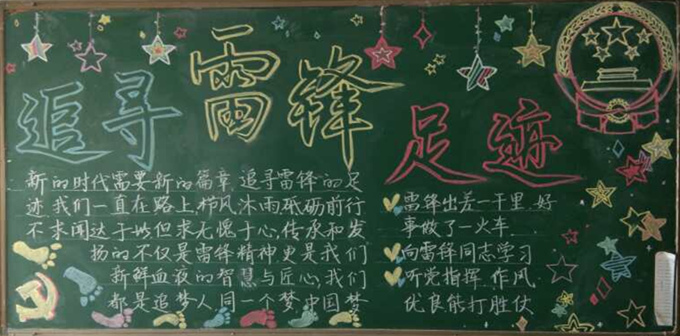 追寻雷锋足迹
新的时代需要新的篇章追寻雷锋的足
迹我们一直在路上栉风沐雨砥砺前行
不求闻达于世但求无愧于心,传承和发
扬的不仅是雷锋精神更是我们
新鲜血液的智慧与匠心,我们
都是追梦人同一个梦中国梦
雷锋出差一千里,好
事做了一火车
向雷锋同志学习
听党指挥 作风
优良能打胜仗